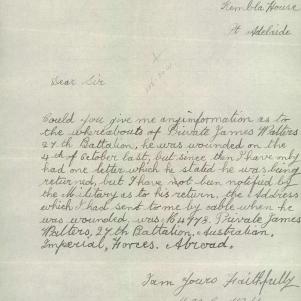 Kembla House
Pt Adelaide
Dear Sir
Could you give me any information as to
the whereabouts of Private James Walters
27th Battalion, he was wounded on the
4th of October last, but since then I have only
had one letter which he stated he was being
returned, but I have not been notified by
the Military as to his return, the Address
which I had sent to me by cable when he
was wounded, was 6498. Private James
Walters, 27th Battalion, Australian.
Imperial, Forces. Abroad.
I am Yours Faithfully